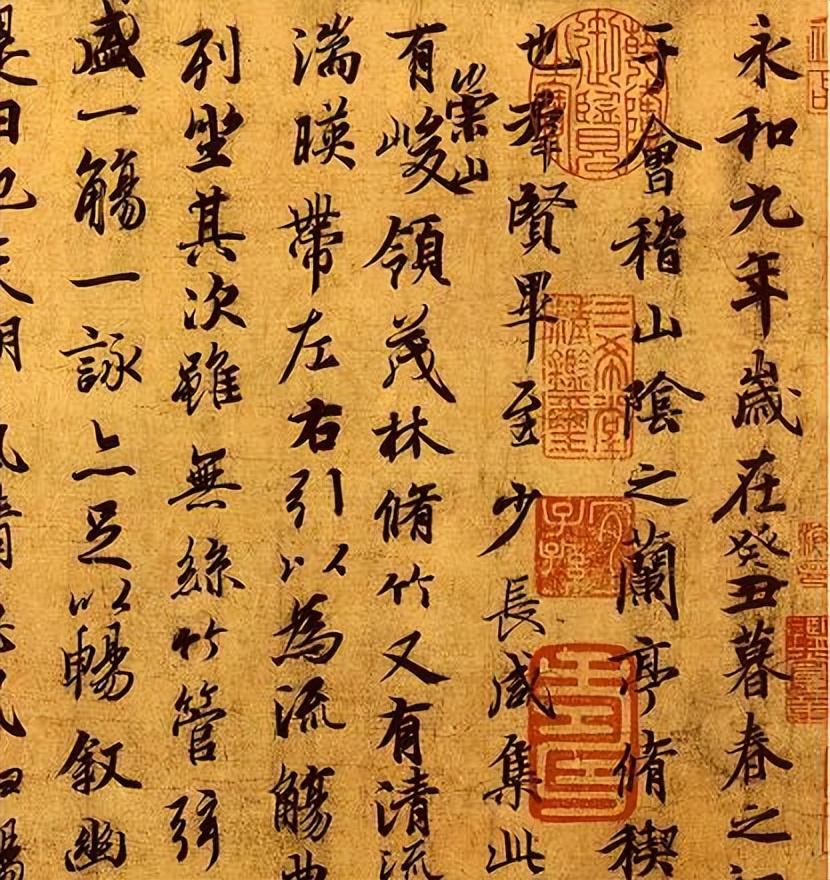 永和九年歲在癸丑暮春之
于會稽山陰之蘭亭脩稧
也羣賢畢至少長咸集此
有崇山峻領茂林脩竹又有清流
湍暎帶左右引以為流觴曲
列坐其次雖無絲竹管弦
盛一觴一詠亦足以暢叙幽
是日也天
三希堂精鑑璽
宜子孫